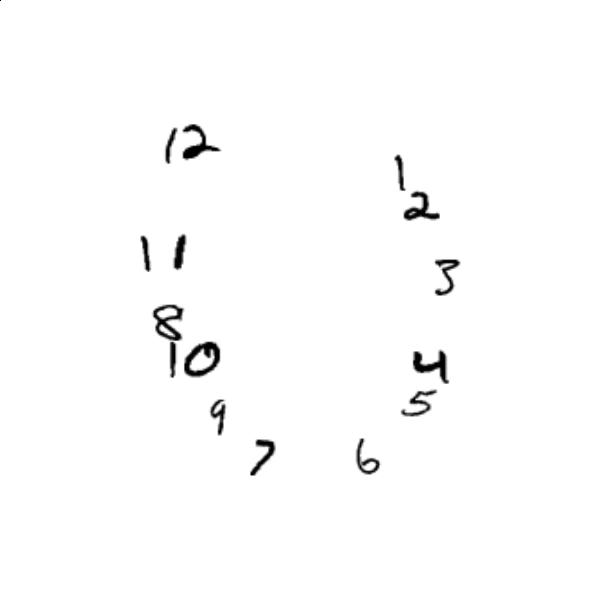 12
1
2
11
3
8
10
4
5
9
7
6